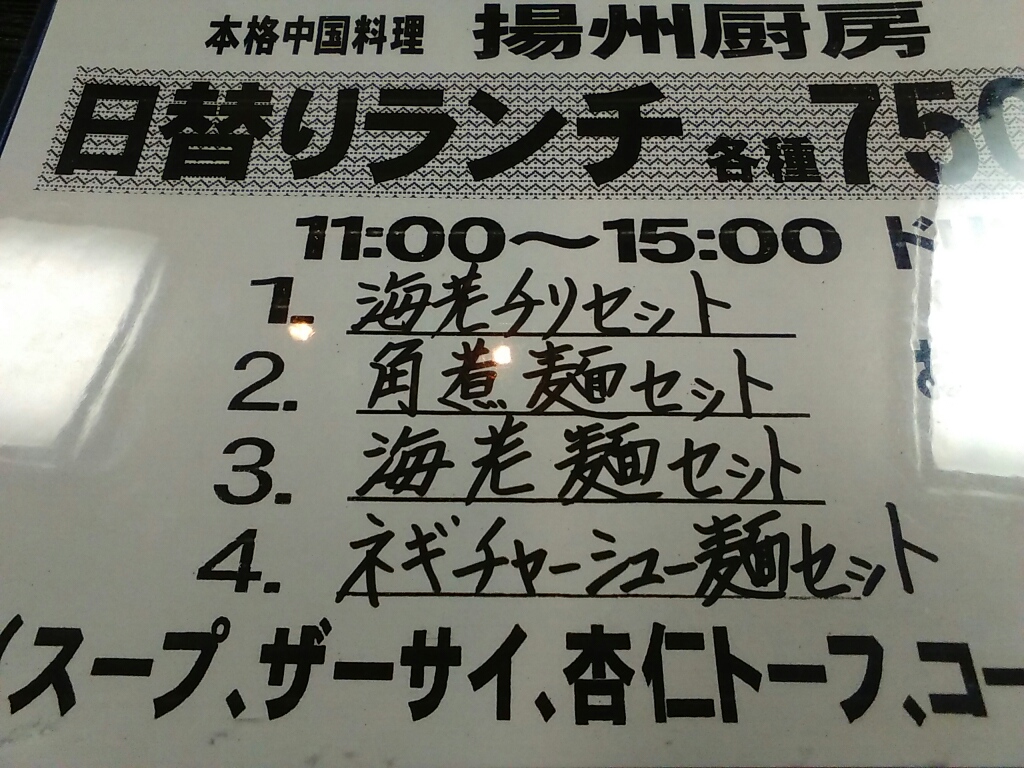 本格中国料理 揚州厨房
日替りランチ 各種750
11:00～15:00 ド
1. 海老チリセット
2. 角煮麺セット
3. 海老麺セット
4. ネギチャーシュー麺セット
(スープ、ザーサイ、杏仁トーフ、コー